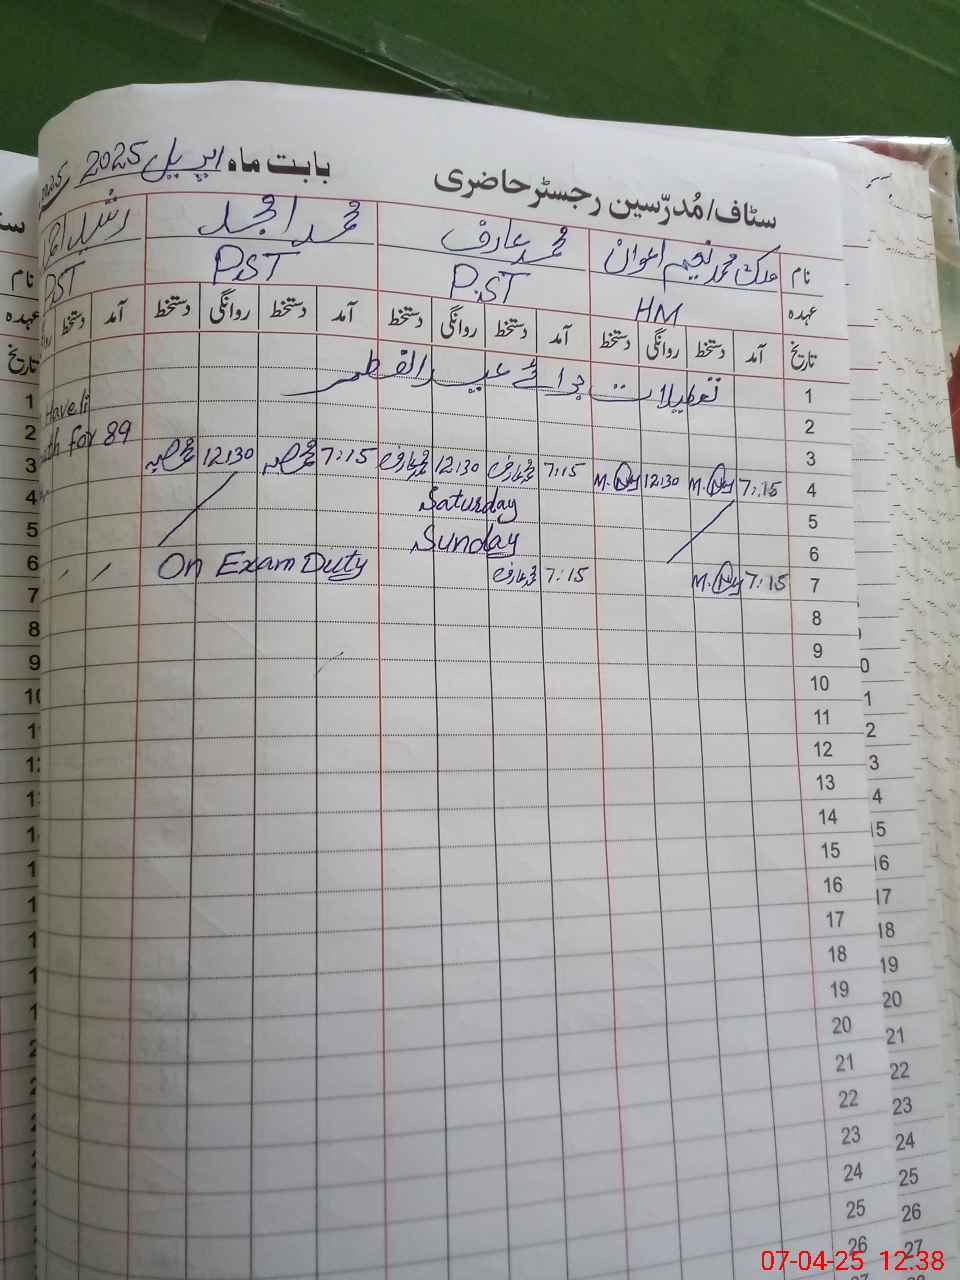 سٹاف/مُدرّسین رجسٹر حاضری بابت ماہ اپریل 2025
نام ملک محمد نعیم اعوان محمد عارف محمد امجد
عہدہ HM P.ST P.ST PST
تاریخ آمد دستخط روانگی دستخط آمد دستخط روانگی دستخط آمد دستخط روانگی دستخط آمد دستخط
1 تعطیلات برائے عید الفطر
2
3
4 7:15 12:30 7:15 محمد عارف 12:30 محمد عارف 7:15 12:30
5 Saturday
6 Sunday
7 7:15 7:15 محمد عارف On Exam Duty
8
9
10
11
12
13
14
15
16
17
18
19
20
21
22
23
24
25
26
for 89
نام
عہدہ
تاریخ
1
2
3
4
5
6
7
8
9
10
20
21
22
23
24
25
26
27
07-04-25 12:38